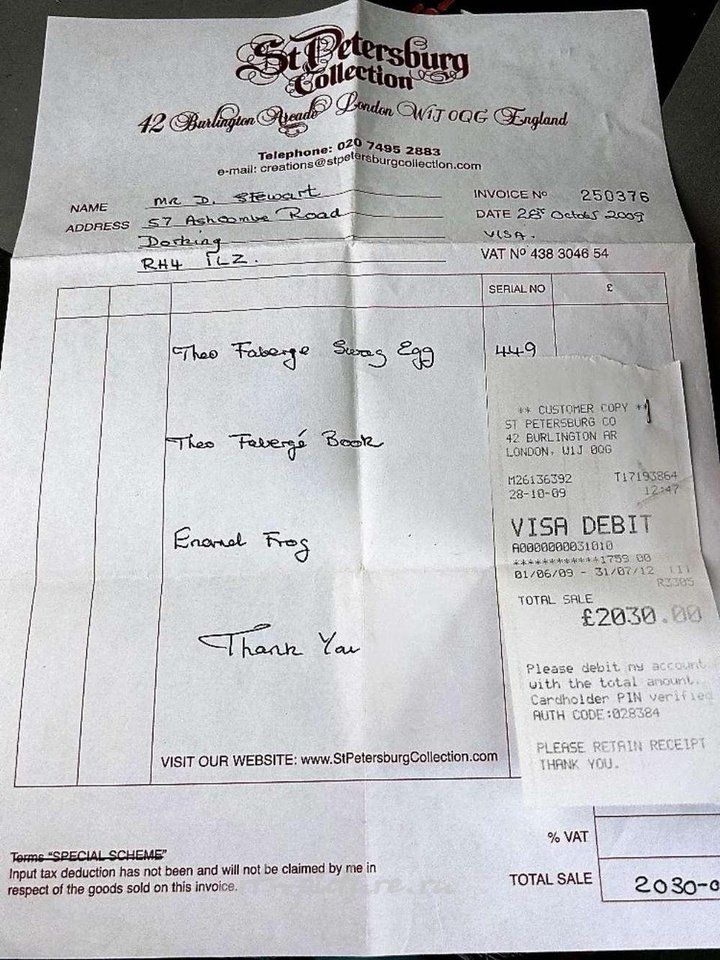 St Petersburg
Collection
42 Burlington Arcade London W1J 0QG England
Telephone: 020 7495 2883
e-mail: creations@stpetersburgcollection.com
NAME Mr D. Stewart
ADDRESS 57 Ashcombe Road
Dorking
RH4 1LZ.
INVOICE Nº 250376
DATE 28 October 2009
VISA.
VAT Nº 438 3046 54
SERIAL NO £
Theo Faberge Swag Egg 449
Theo Fabergé Book
Enamel Frog
Thank You
VISIT OUR WEBSITE: www.StPetersburgCollection.com
** CUSTOMER COPY **
ST PETERSBURG CO
42 BURLINGTON AR
LONDON, W1J 0QG
M26136392 T17193864
28-10-09 12:47
VISA DEBIT
A0000000031010
************1759 00
01/06/09 - 31/07/12
R3305
TOTAL SALE
£2030.00
Please debit my account
with the total amount.
Cardholder PIN verified
AUTH CODE:028384
PLEASE RETAIN RECEIPT
THANK YOU.
Terms "SPECIAL SCHEME"
Input tax deduction has not been and will not be claimed by me in
respect of the goods sold on this invoice.
% VAT
TOTAL SALE 2030-0